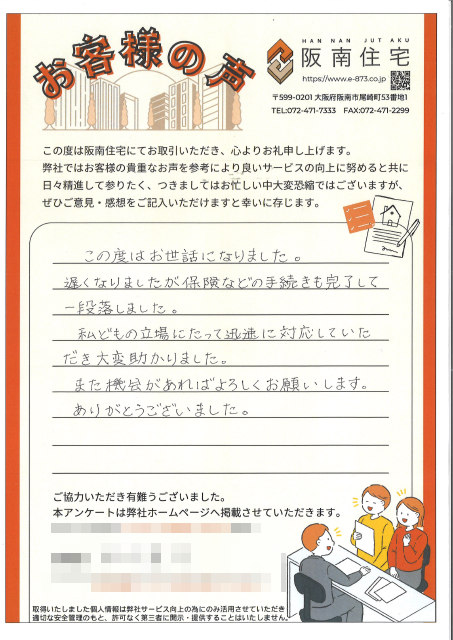 お客様の声
HAN NAN JUTAKU
阪南住宅
https://www.e-873.co.jp
〒599-0201 大阪府阪南市尾崎町53番地1
TEL:072-471-7333 FAX:072-471-2299
この度は阪南住宅にてお取引いただき、心よりお礼申し上げます。
弊社ではお客様の貴重なお声を参考により良いサービスの向上に努めると共に
日々精進して参りたく、つきましてはお忙しい中大変恐縮ではございますが、
ぜひご意見・感想をご記入いただけますと幸いに存じます。
この度はお世話になりました。
遅くなりましたが保険などの手続きも完了して
一段落しました。
私どもの立場にたって迅速に対応していた
だき大変助かりました。
また機会があればよろしくお願いします。
ありがとうございました。
ご協力いただき有難うございました。
本アンケートは弊社ホームページへ掲載させていただきます。
取得いたしました個人情報は弊社サービス向上の為にのみ活用させていただき
適切な安全管理のもと、許可なく第三者に開示・提供することはいたしません。